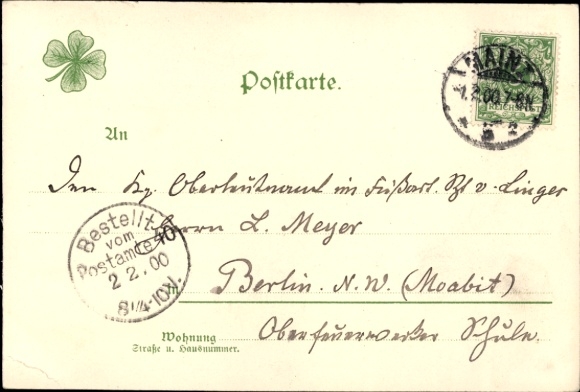 Postkarte.
MAINZ
1.2.00.7-8N.
REICHSPOST
An
Den Kg. Oberleutnant im Fußart. Rgt v. Linger
Herrn L. Meyer
Bestellt
vom
Postamte 40
2 2.00
8¼-10V.
in
Berlin. N.W. (Moabit)
Oberfeuerwerker Schule.
Wohnung
Straße u. Hausnummer.